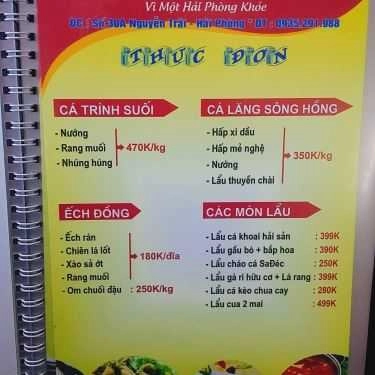 Vì Một Hải Phòng Khỏe
ĐC: Số 30A Nguyễn Trãi - Hải Phòng * ĐT: 0935.291.988
THỰC ĐƠN
CÁ TRÌNH SUỐI
- Nướng
- Rang muối
- Nhúng húng
470K/kg
CÁ LĂNG SÔNG HỒNG
- Hấp xì dầu
- Hấp mẻ nghệ
- Nướng
- Lẩu thuyền chài
350K/kg
ẾCH ĐỒNG
- Ếch rán
- Chiên lá lốt
- Xào sả ớt
- Rang muối
180K/đĩa
- Om chuối đậu : 250K/kg
CÁC MÓN LẨU
- Lẩu cá khoai hải sản : 399K
- Lẩu gầu bò + bắp hoa : 390K
- Lẩu cháo cá SaĐéc : 250K
- Lẩu gà ri hữu cơ + Lá rang : 399K
- Lẩu cá kèo chua cay : 280K
- Lẩu cua 2 mai : 499K